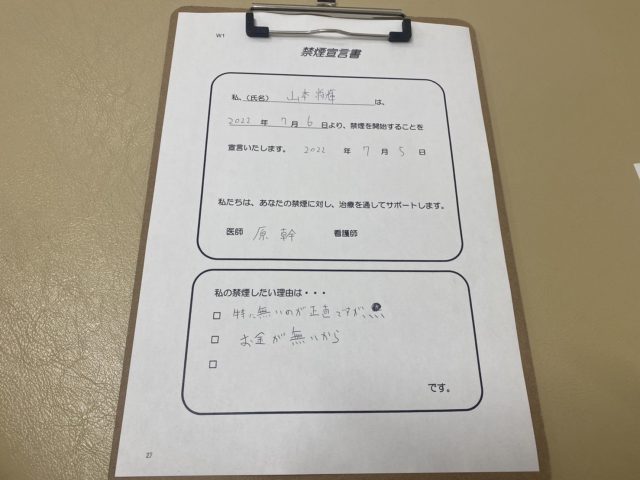 W1
禁煙宣言書
私、(氏名) 山本 将輝 は、
2022 年 7 月 6 日より、禁煙を開始することを
宣言いたします。 2022 年 7 月 5 日
私たちは、あなたの禁煙に対し、治療を通してサポートします。
医師 原 幹 看護師
私の禁煙したい理由は・・・
□ 特に無いのが正直ですが、、、、
□ お金が無いから
□
です。
27